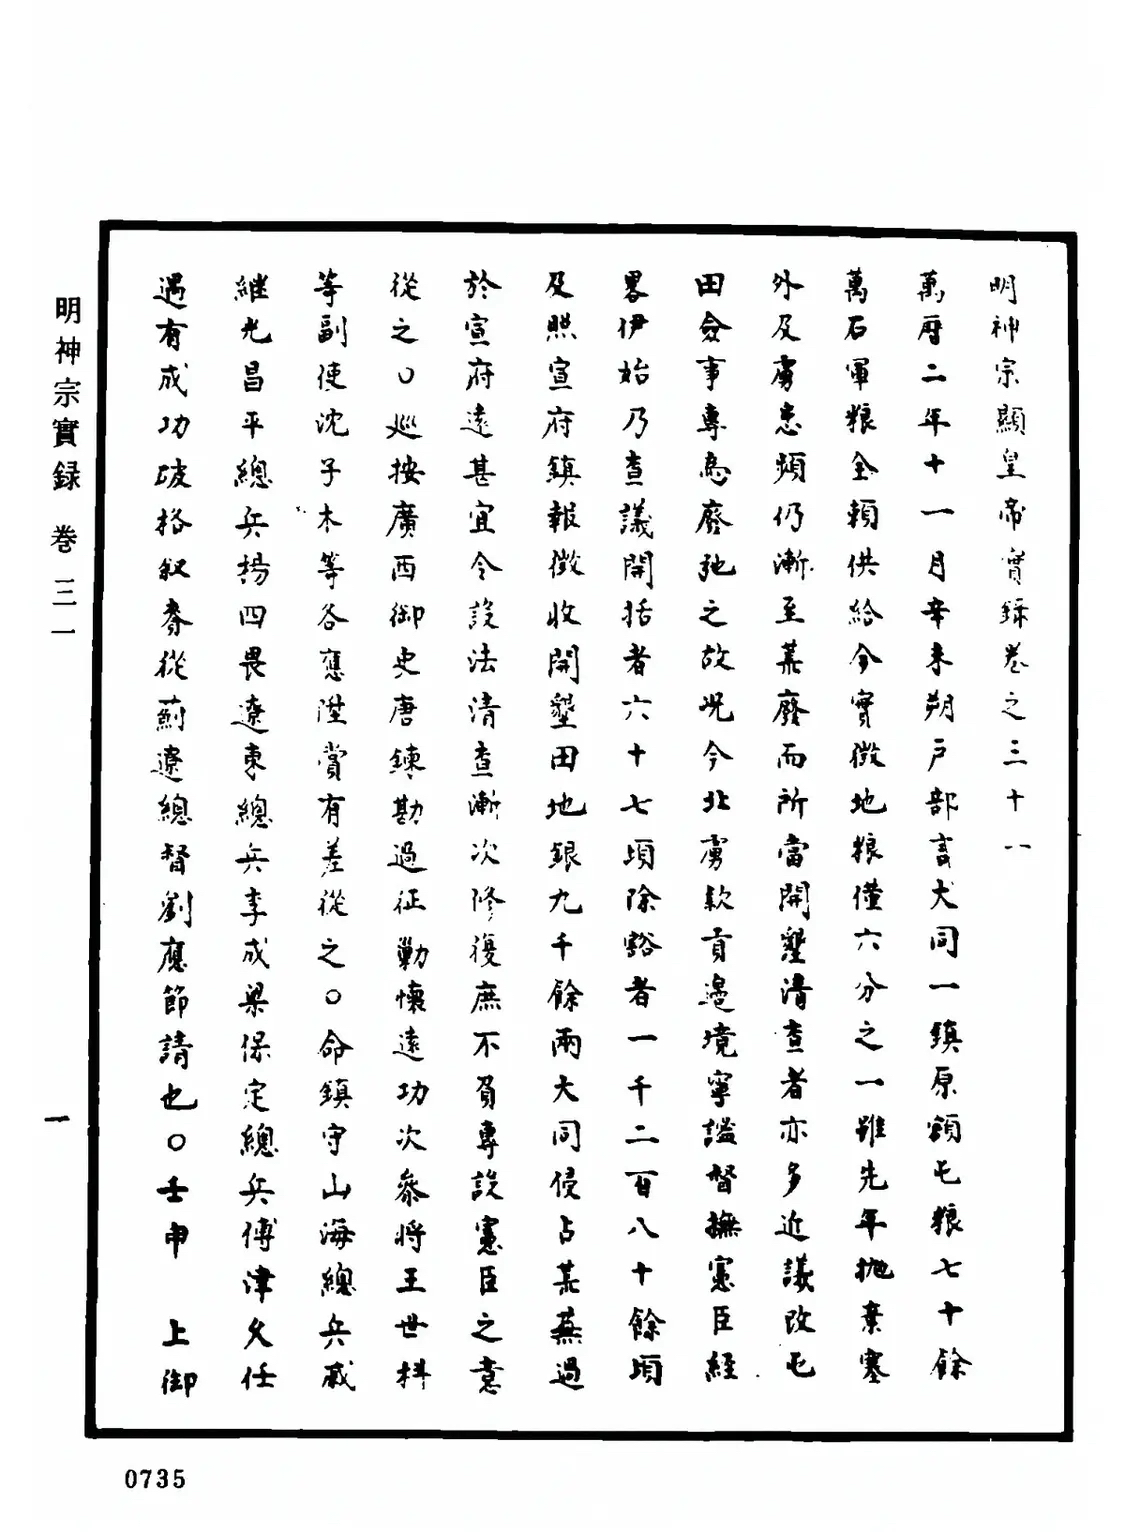 明神宗顯皇帝實錄卷之三十一
萬曆二年十一月辛未朔戶部言大同一鎮原額屯糧七十餘
萬石軍糧全賴供給今實徵地糧僅六分之一雖先年拋棄塞
外及虜患頻仍漸至荒廢而所當開墾清查者亦多近議改屯
田僉事專為廢弛之故況今北虜款貢邊境寧謐督撫憲臣經
畧伊始乃查議開括者六十七頃除豁者一千二百八十餘頃
及照宣府鎮報徵收開墾田地銀九千餘兩大同侵占荒蕪過
於宣府遠甚宜令設法清查漸次修復庶不負專設憲臣之意
從之○巡按廣西御史唐鍊勘過征勦懷遠功次參將王世科
等副使沈子木等各應陞賞有差從之○命鎮守山海總兵戚
繼光昌平總兵楊四畏遼東總兵李成梁保定總兵傅津久任
遇有成功破格叙賚從薊遼總督劉應節請也○壬申　上御
明神宗實錄　卷三一
一
0735